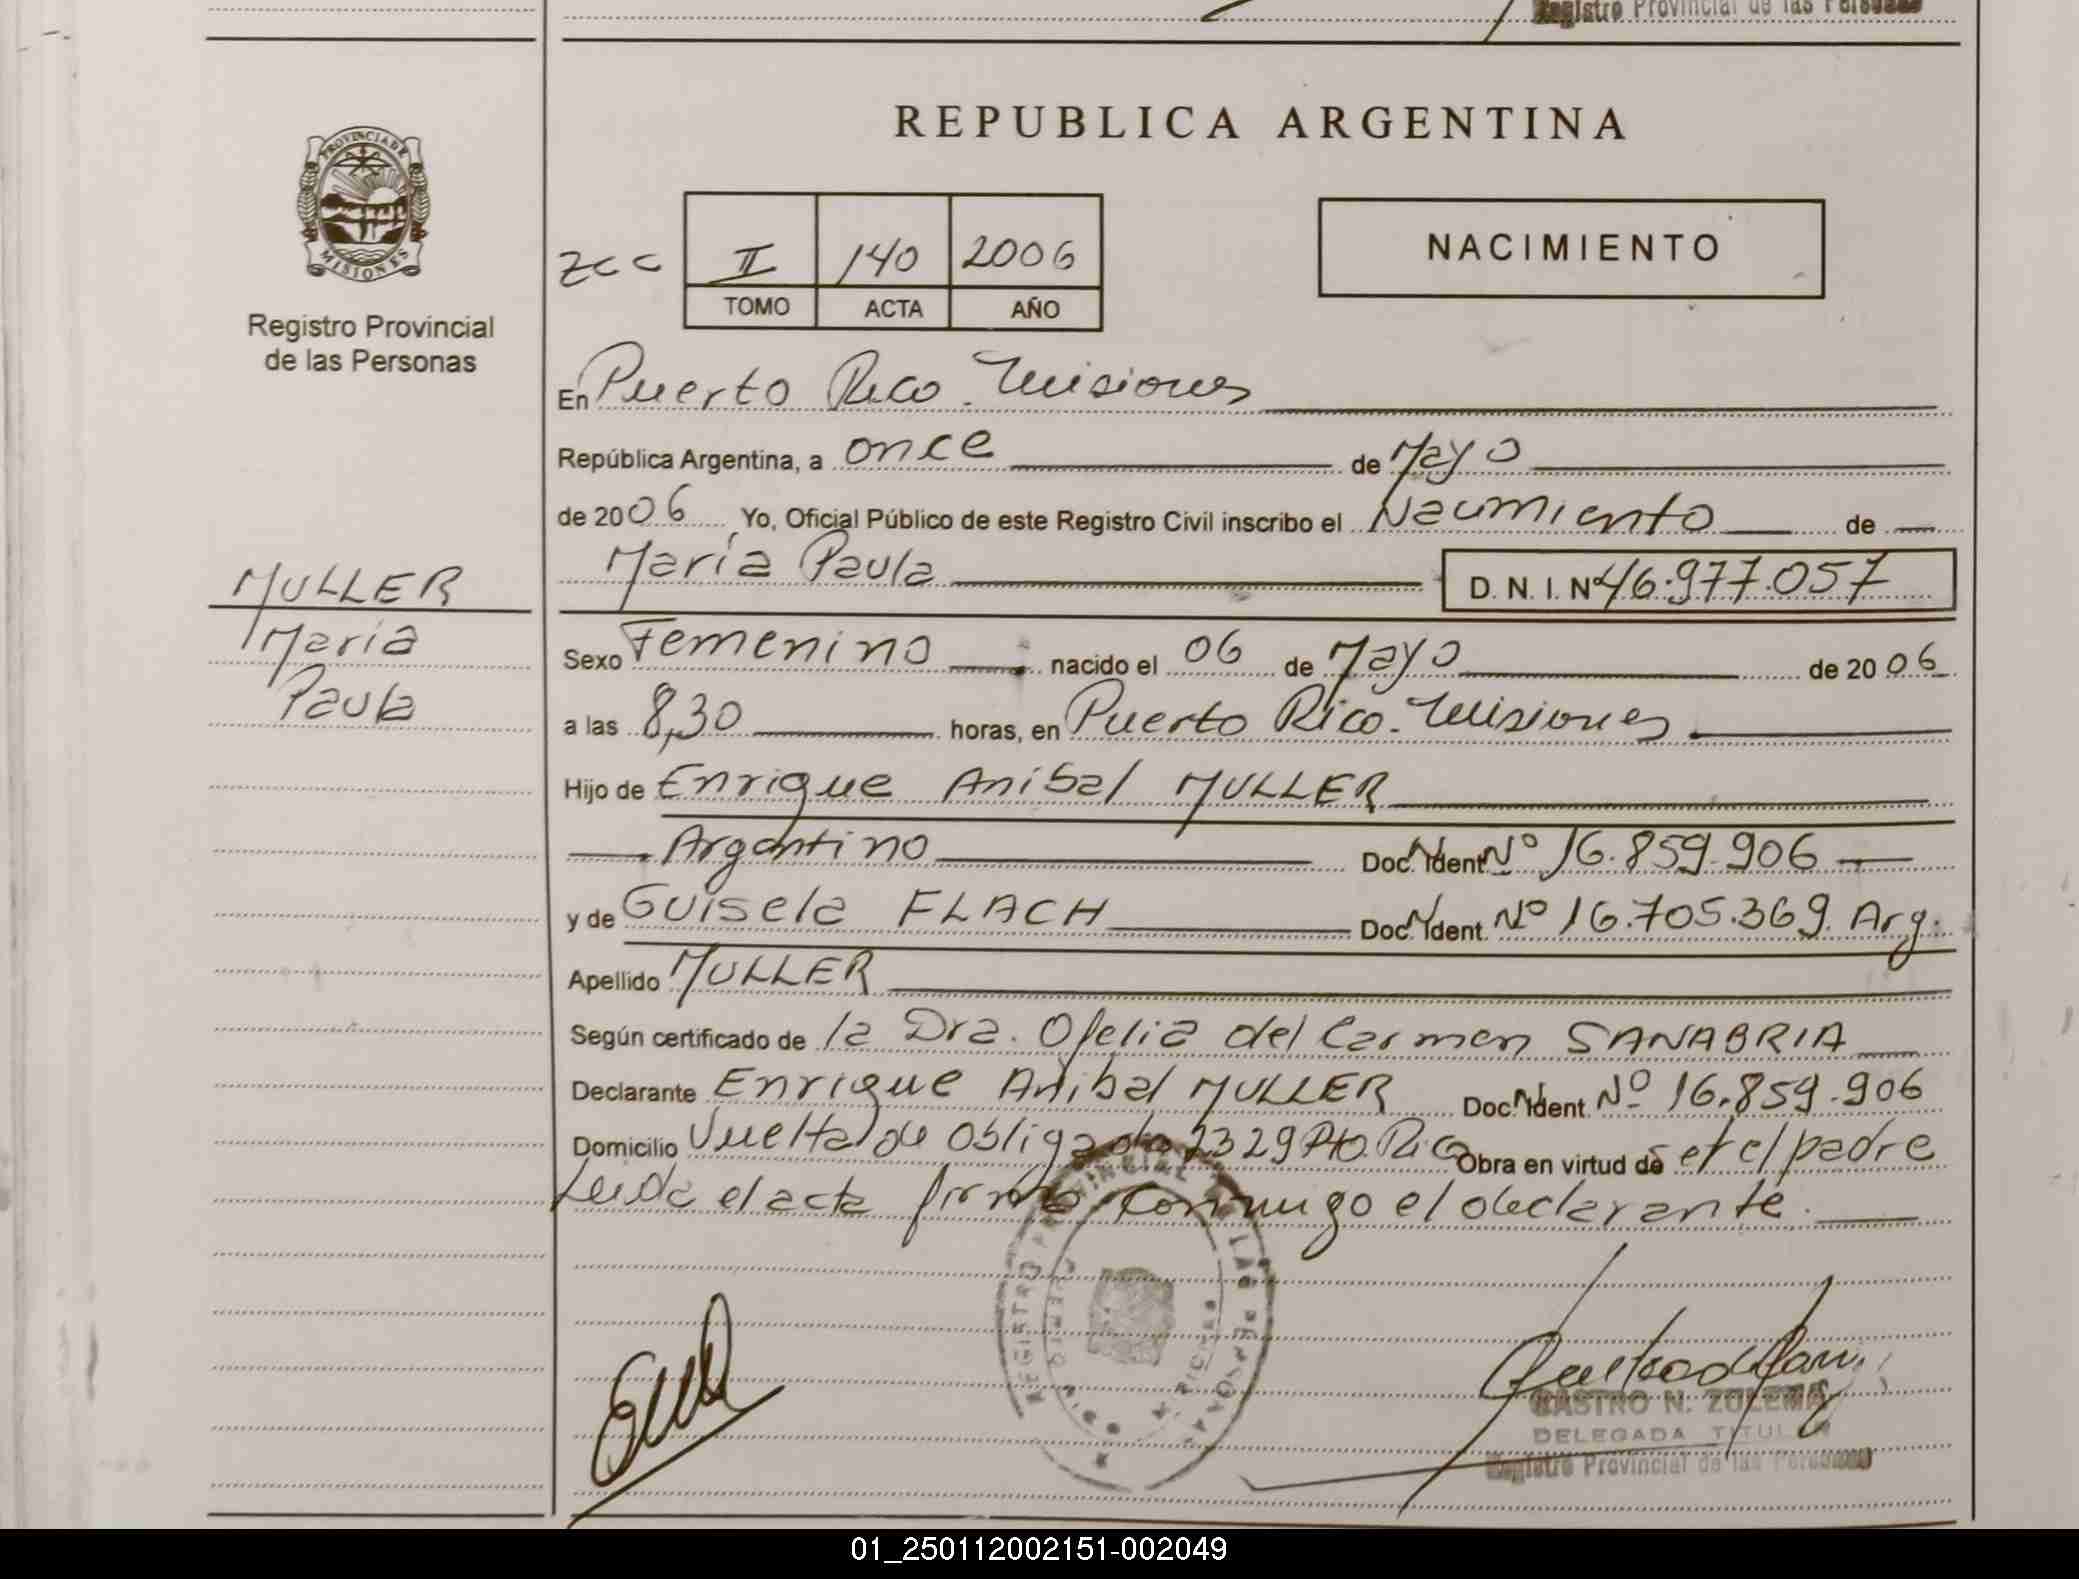 Registro Provincial de las Personas
REPUBLICA ARGENTINA
PROVINCIA DE
MISIONES
Registro Provincial
de las Personas
zcc
II 140 2006
TOMO ACTA AÑO
NACIMIENTO
En Puerto Rico. Misiones
República Argentina, a once de Mayo
de 2006 Yo, Oficial Público de este Registro Civil inscribo el Nacimiento de
María Paula D. N. I. Nº 46.977.057
MULLER
María
Paula
Sexo Femenino nacido el 06 de Mayo de 2006
a las 8,30 horas, en Puerto Rico. Misiones
Hijo de Enrique Anibal MULLER
Argentino Doc. Ident. Nº 16.859.906
y de Guisela FLACH Doc. Ident. Nº 16.705.369. Arg.
Apellido MULLER
Según certificado de la Dra. Ofelia del Carmen SANABRIA
Declarante Enrique Anibal MULLER Doc. Ident. Nº 16.859.906
Domicilio Vuelta de Obligado 2329 Pto. Rico Obra en virtud de ser el padre
Leida el acta firma conmigo el declarante.
REGISTRO PROVINCIAL DE LAS PERSONAS
PUERTO RICO
CASTRO N. ZULEMA
DELEGADA TITULAR
Registro Provincial de las Personas
01_250112002151-002049